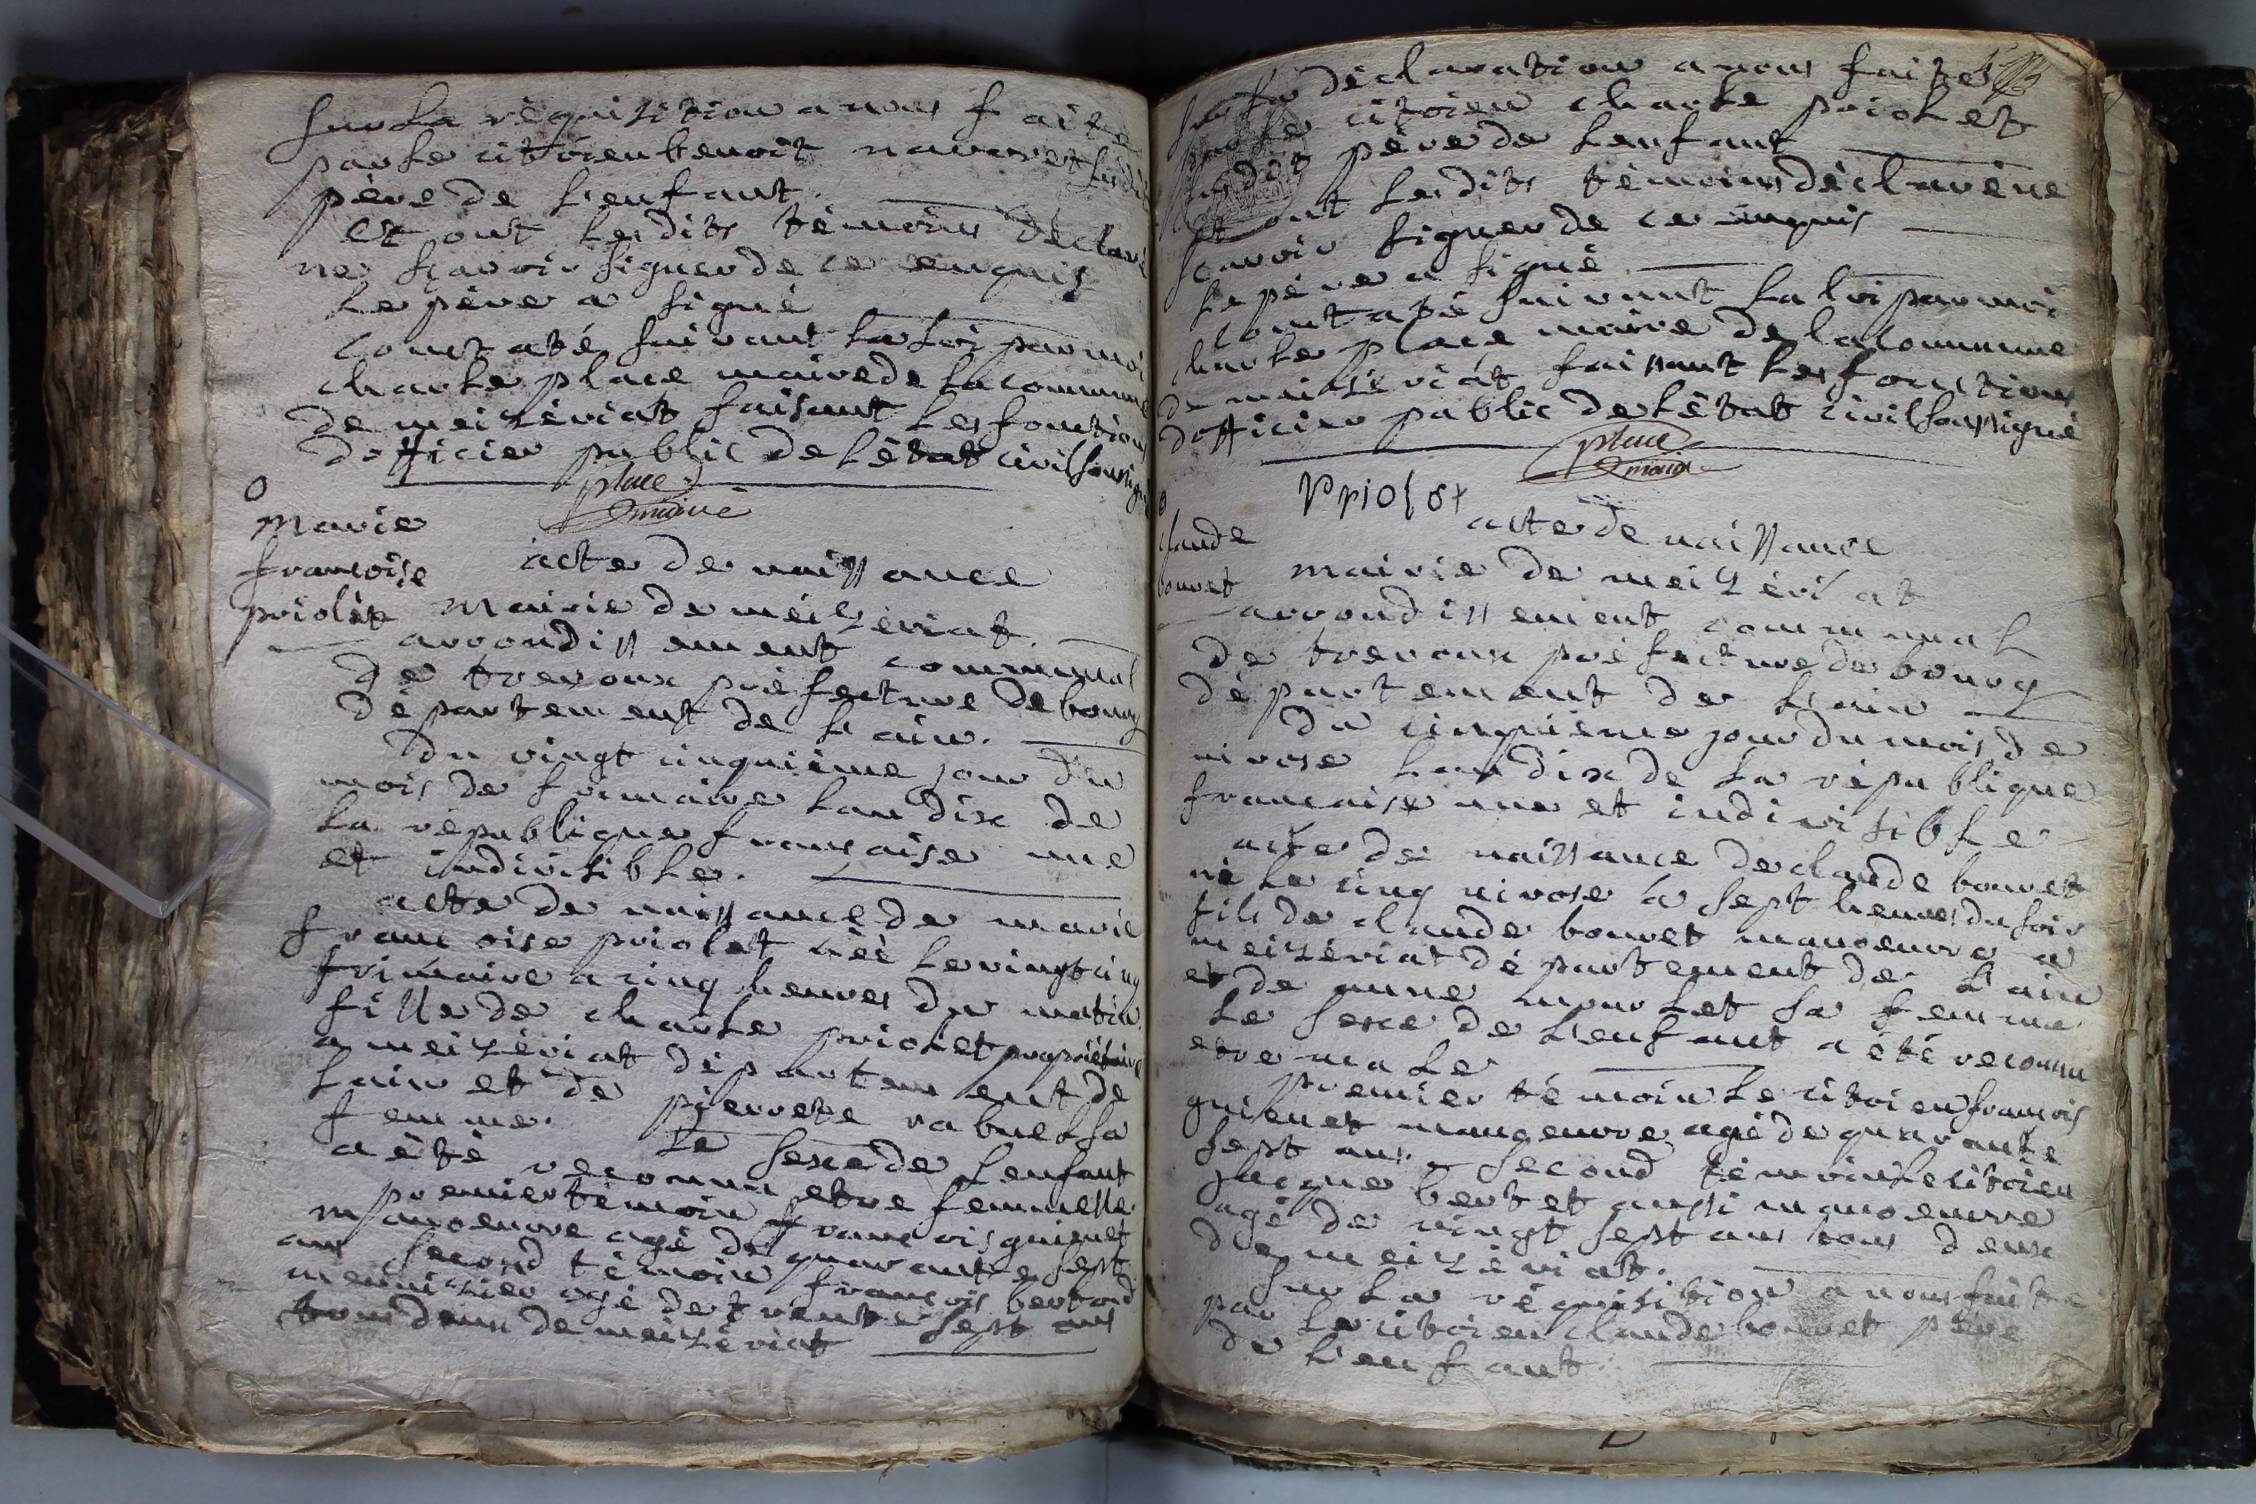 sur La réquisition a nous faite
par Le citoien benoit navarret susdit
père de Lenfant.
Et ont Lesdits témoins déclaré
ne sçavoir signer de ce enquis
Le père a signé
constaté suivant La Loi par moi
charle place maire de La commune
de meizériat faisant Les fonctions
dofficier public de Létat civil soussigné
place
maire
marie
françoise
priolèt
acte de naissance
Mairie de méizériat
arrondissement communal
de trevoux préfecture de bourg
département de Lain.
du vingt cinquième jour du
mois de frimaire Lan dix de
La république française une
et indivisible.
acte de naissance de marie
françoise priolet néé Le vingt cinq
frimaire a cinq heures du matin.
fille de charle priolet propriétaire
a meizériat département de
Lain et de pierrete rabuel sa
femme. Le sexe de Lenfant
a été reconnu etre femmelle
premier témoin françois guienet
manoeuvre agé de quarante sept
ans second témoin françois
menuisier agé de trente sept ans
tous deux de meizériat
sur La déclaration a nous faite
par Le citoien charle priolet
susdit père de Lenfant
Et ont Lesdits témoins déclaré ne
sçavoir signer de ce enquis
Le père a signé
constaté suivant La loi par moi
charle place maire de la commune
de meizériat faissant Les fonctions
dofficier public de Létat civil soussigné
place
maire
Ppriolet
claude
bouvet
acte de naissance
mairie de meizériat
arrondissement communal
de trevoux préfecture de bourg
département de Lain
du cinquième jour du mois de
nivose Lan dix de La république
francaise une et indivisible
acte de naissance de claude bouvet
né Le cinq nivose à sept heures du soir
fils de claude bouvet manoeuvre a
meizériat département de Lain
et de anne mour Let sa femme
Le sexe de Lenfant a été reconnu
etre male
premier témoin Le citoien françois
guienet manoeuvre agé de quarante
sept ans. second témoin Le citoien
jacque bertet aussi manoeuvre
agé de vingt sept ans tous deux
de meizériat.
sur La réquisition a nous faite
par Le citoien claude bouvet père
de Lenfant.